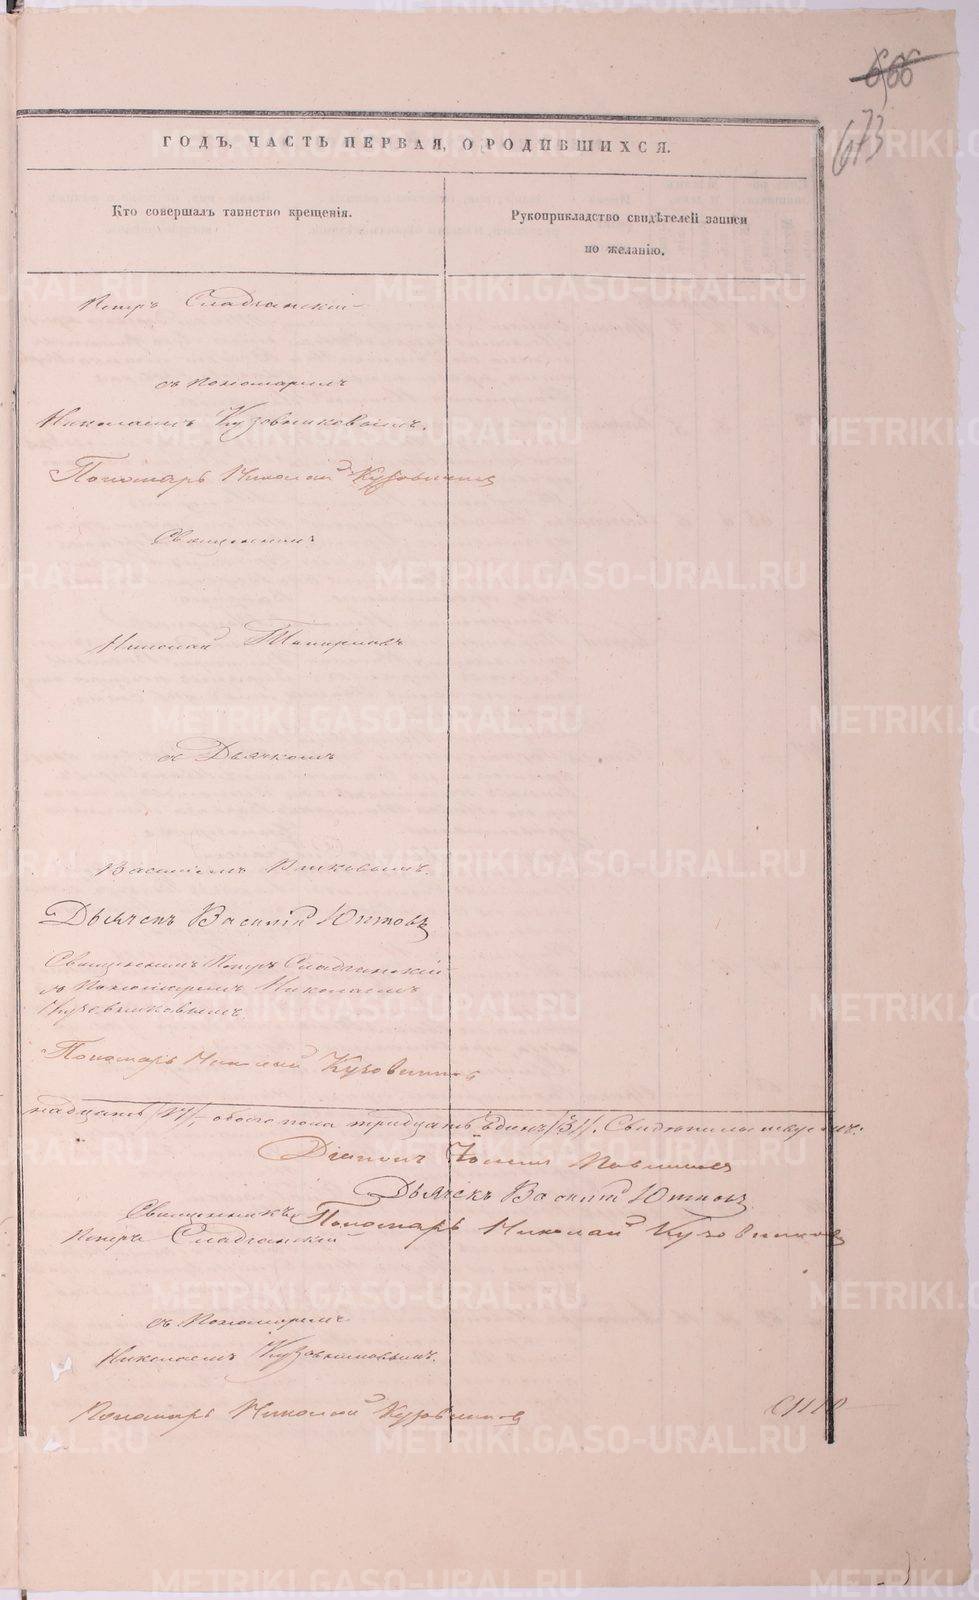 666
673
ГОДЪ, ЧАСТЬ ПЕРВАЯ, О РОДИВШИХСЯ.
Кто совершалъ таинство крещенія.
Рукоприкладство свидѣтелей записи
по желанію.
Петръ Сладчанскій
съ Пономаремъ
Николаемъ Кузовниковымъ.
Пономарь Николай Кузовников
Священникъ
Николай Топорковъ
съ Дьячкомъ
Василіемъ
Дьячекъ Василій
Священникъ Петръ Сладчанскій
съ Пономаремъ Николаемъ
Кузовниковымъ.
Пономарь Николай Кузовников
надцать /17/, обоего пола тридцать одинъ /31/. Свидѣтельствуемъ:
Діаконъ
Дьячекъ Василій
Священникъ Пономарь Николай Кузовников
Петръ Сладчанскій
съ Пономаремъ
Николаемъ Кузовниковымъ.
Пономарь Николай Кузовников
METRIKI.GASO-URAL.RU